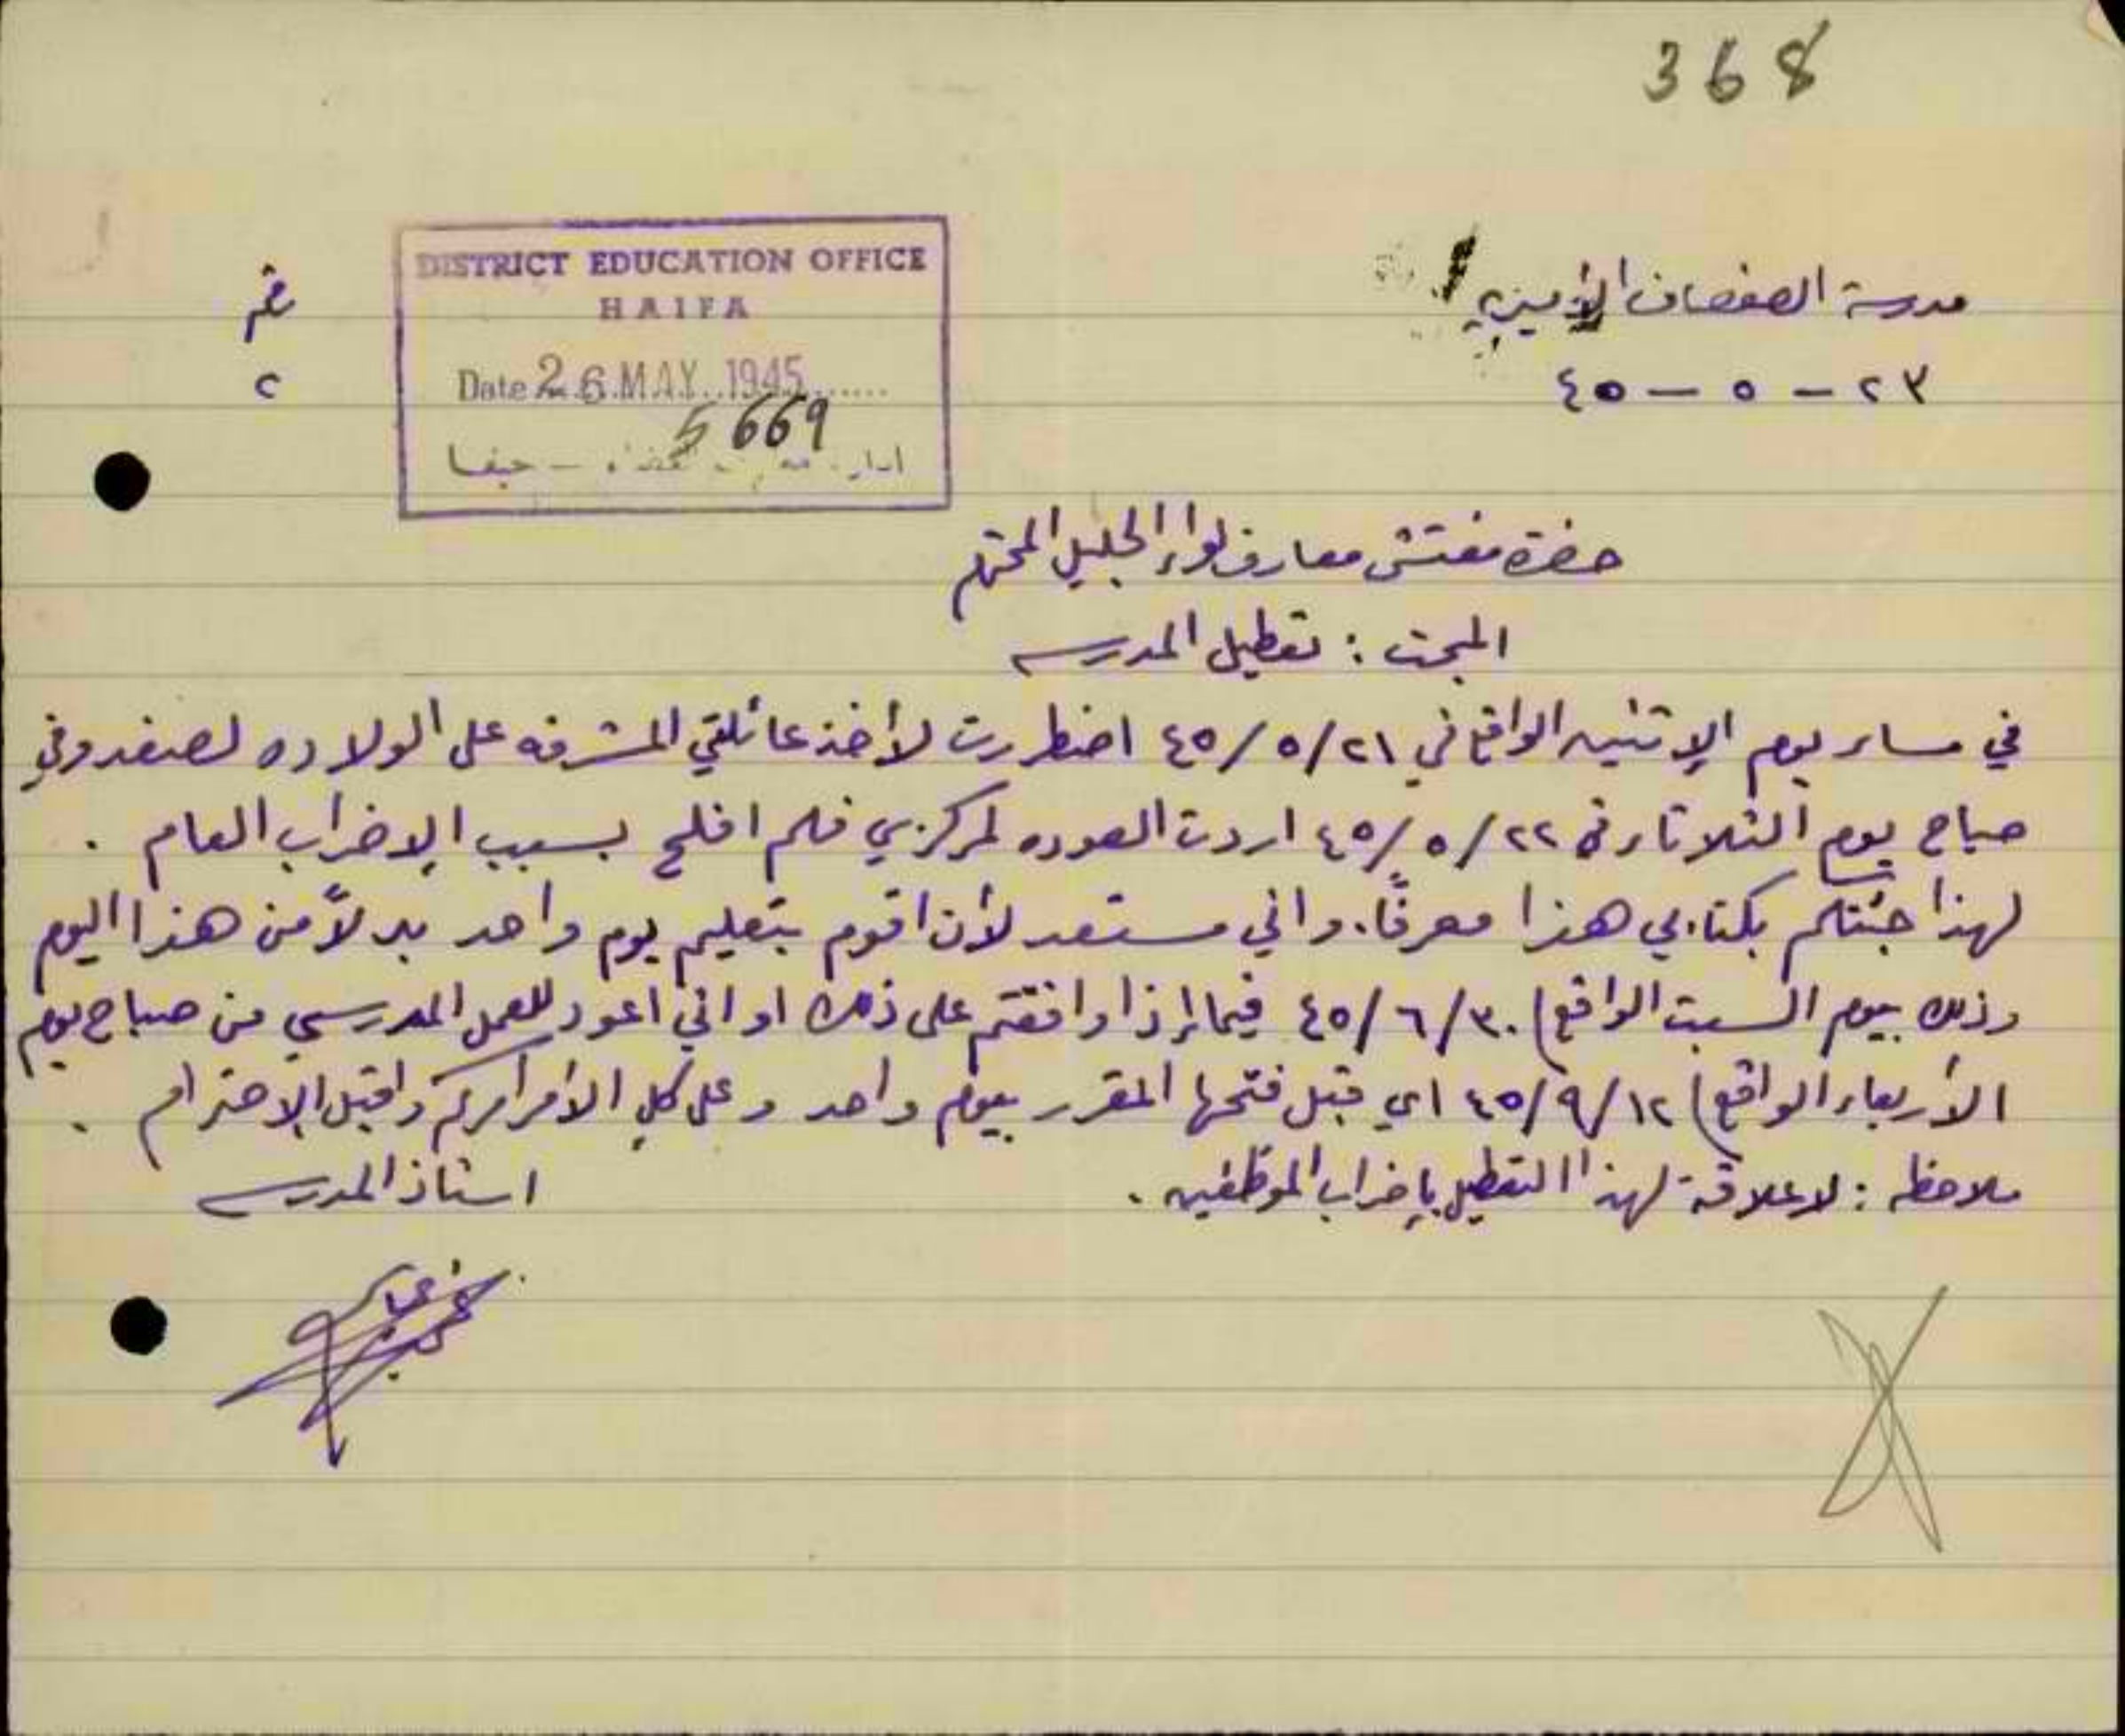 368
مدرسة الصفصاف الأميرية
٢٣ - ٥ - ٤٥
DISTRICT EDUCATION OFFICE
HAIFA
Date 26 MAY 1945
5669
حيفا
٢
حضرة مفتش معارف لواء الجليل المحترم
المبحث : تعطيل المدرسه
في مساء يوم الإثنين الواقع في ٢١/٥/٤٥ اضطررت لأخذ عائلتي المشرفه على الولاده لصفد وفي
صباح يوم الثلاثاء في ٢٢/٥/٤٥ اردت العوده لمركزي فلم افلح بسبب الإضراب العام .
لهذا جئتكم بكتابي هذا معرفًا. واني مستعد لأن اقوم بتعليم يوم واحد بدلاً من هذا اليوم
وذلك بيوم السبت الواقع) ٣٠/٦/٤٥ فيما إذا وافقتم على ذلك او اني اعود للعمل المدرسي من صباح يوم
الأربعاء الواقع) ١٢/٩/٤٥ اي قبل فتحها المقرر بيوم واحد وعلى كلٍ الأمر امركم واقبل الإحترام .
ملاحظه : لا علاقة لهذا التعطيل بإضراب الموظفين .
استاذ المدرسه